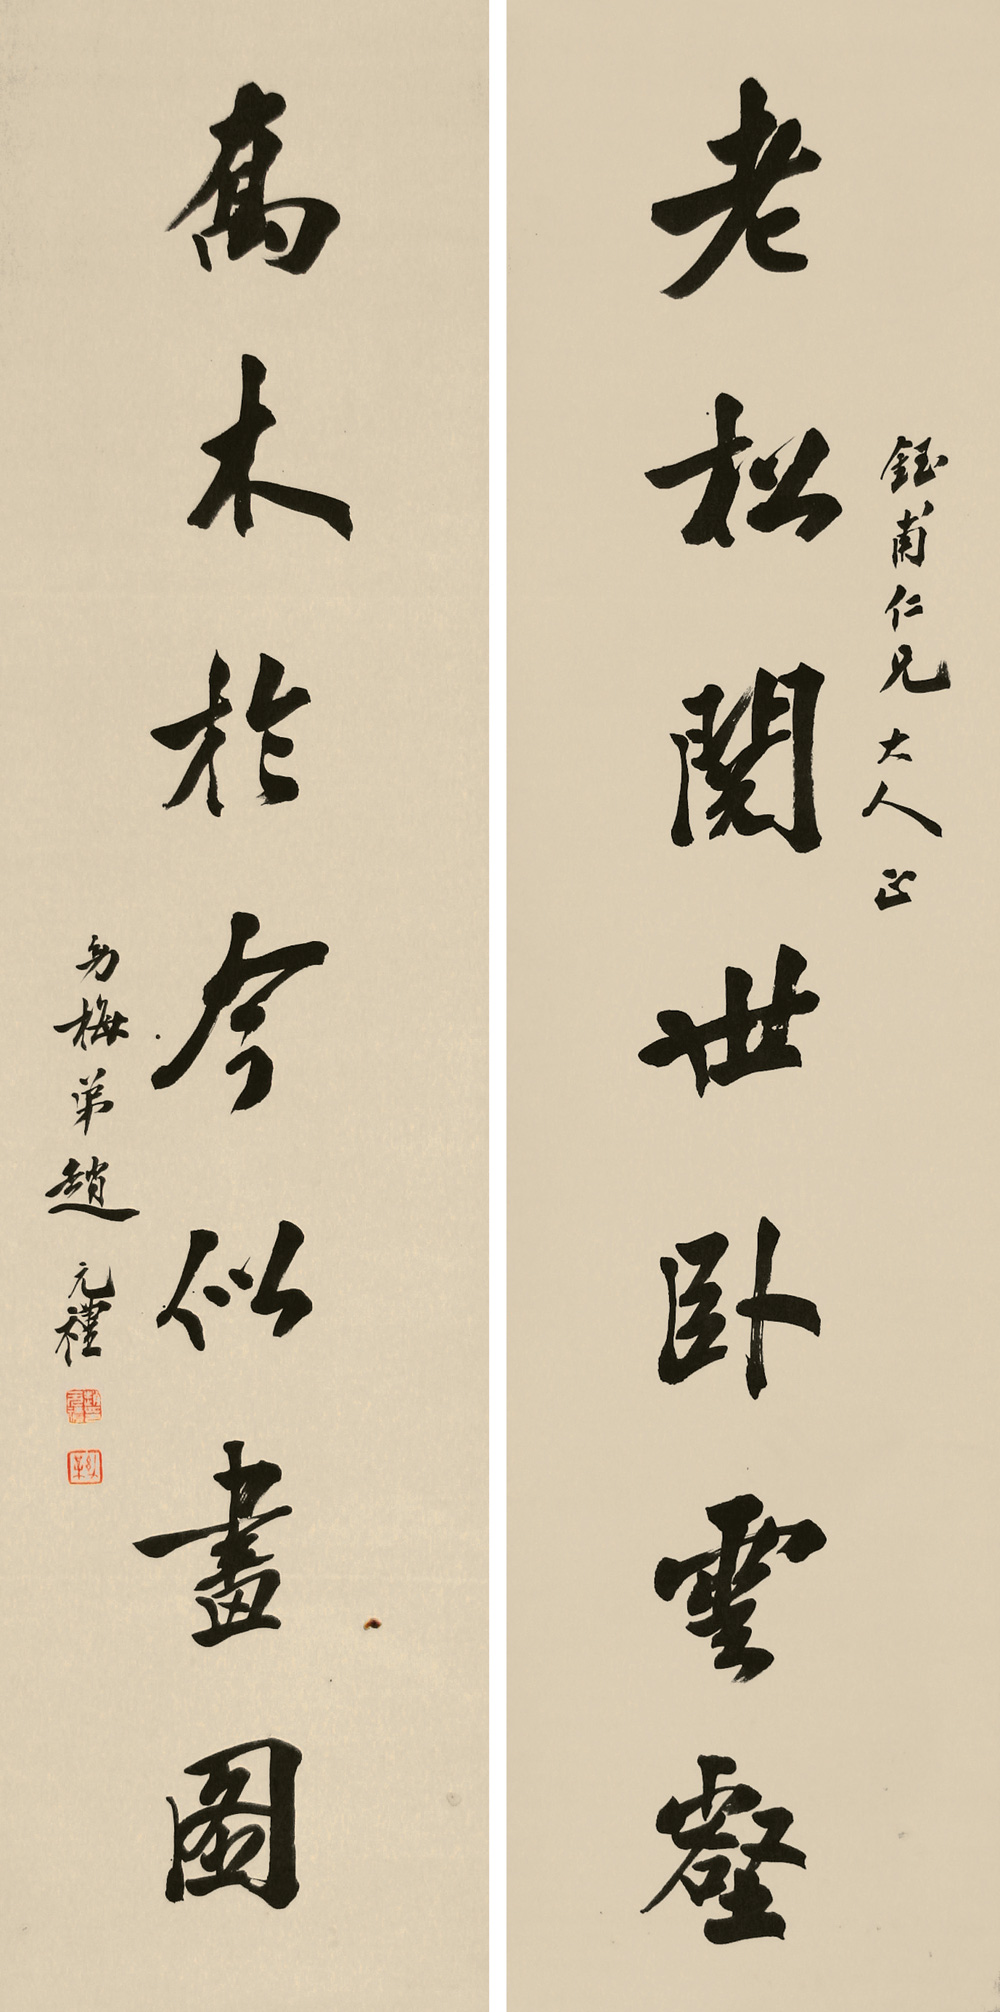 鈺甫仁兄大人正
老松閱世卧雲壑
萬木於今似畫圖
幼梅弟趙元禮